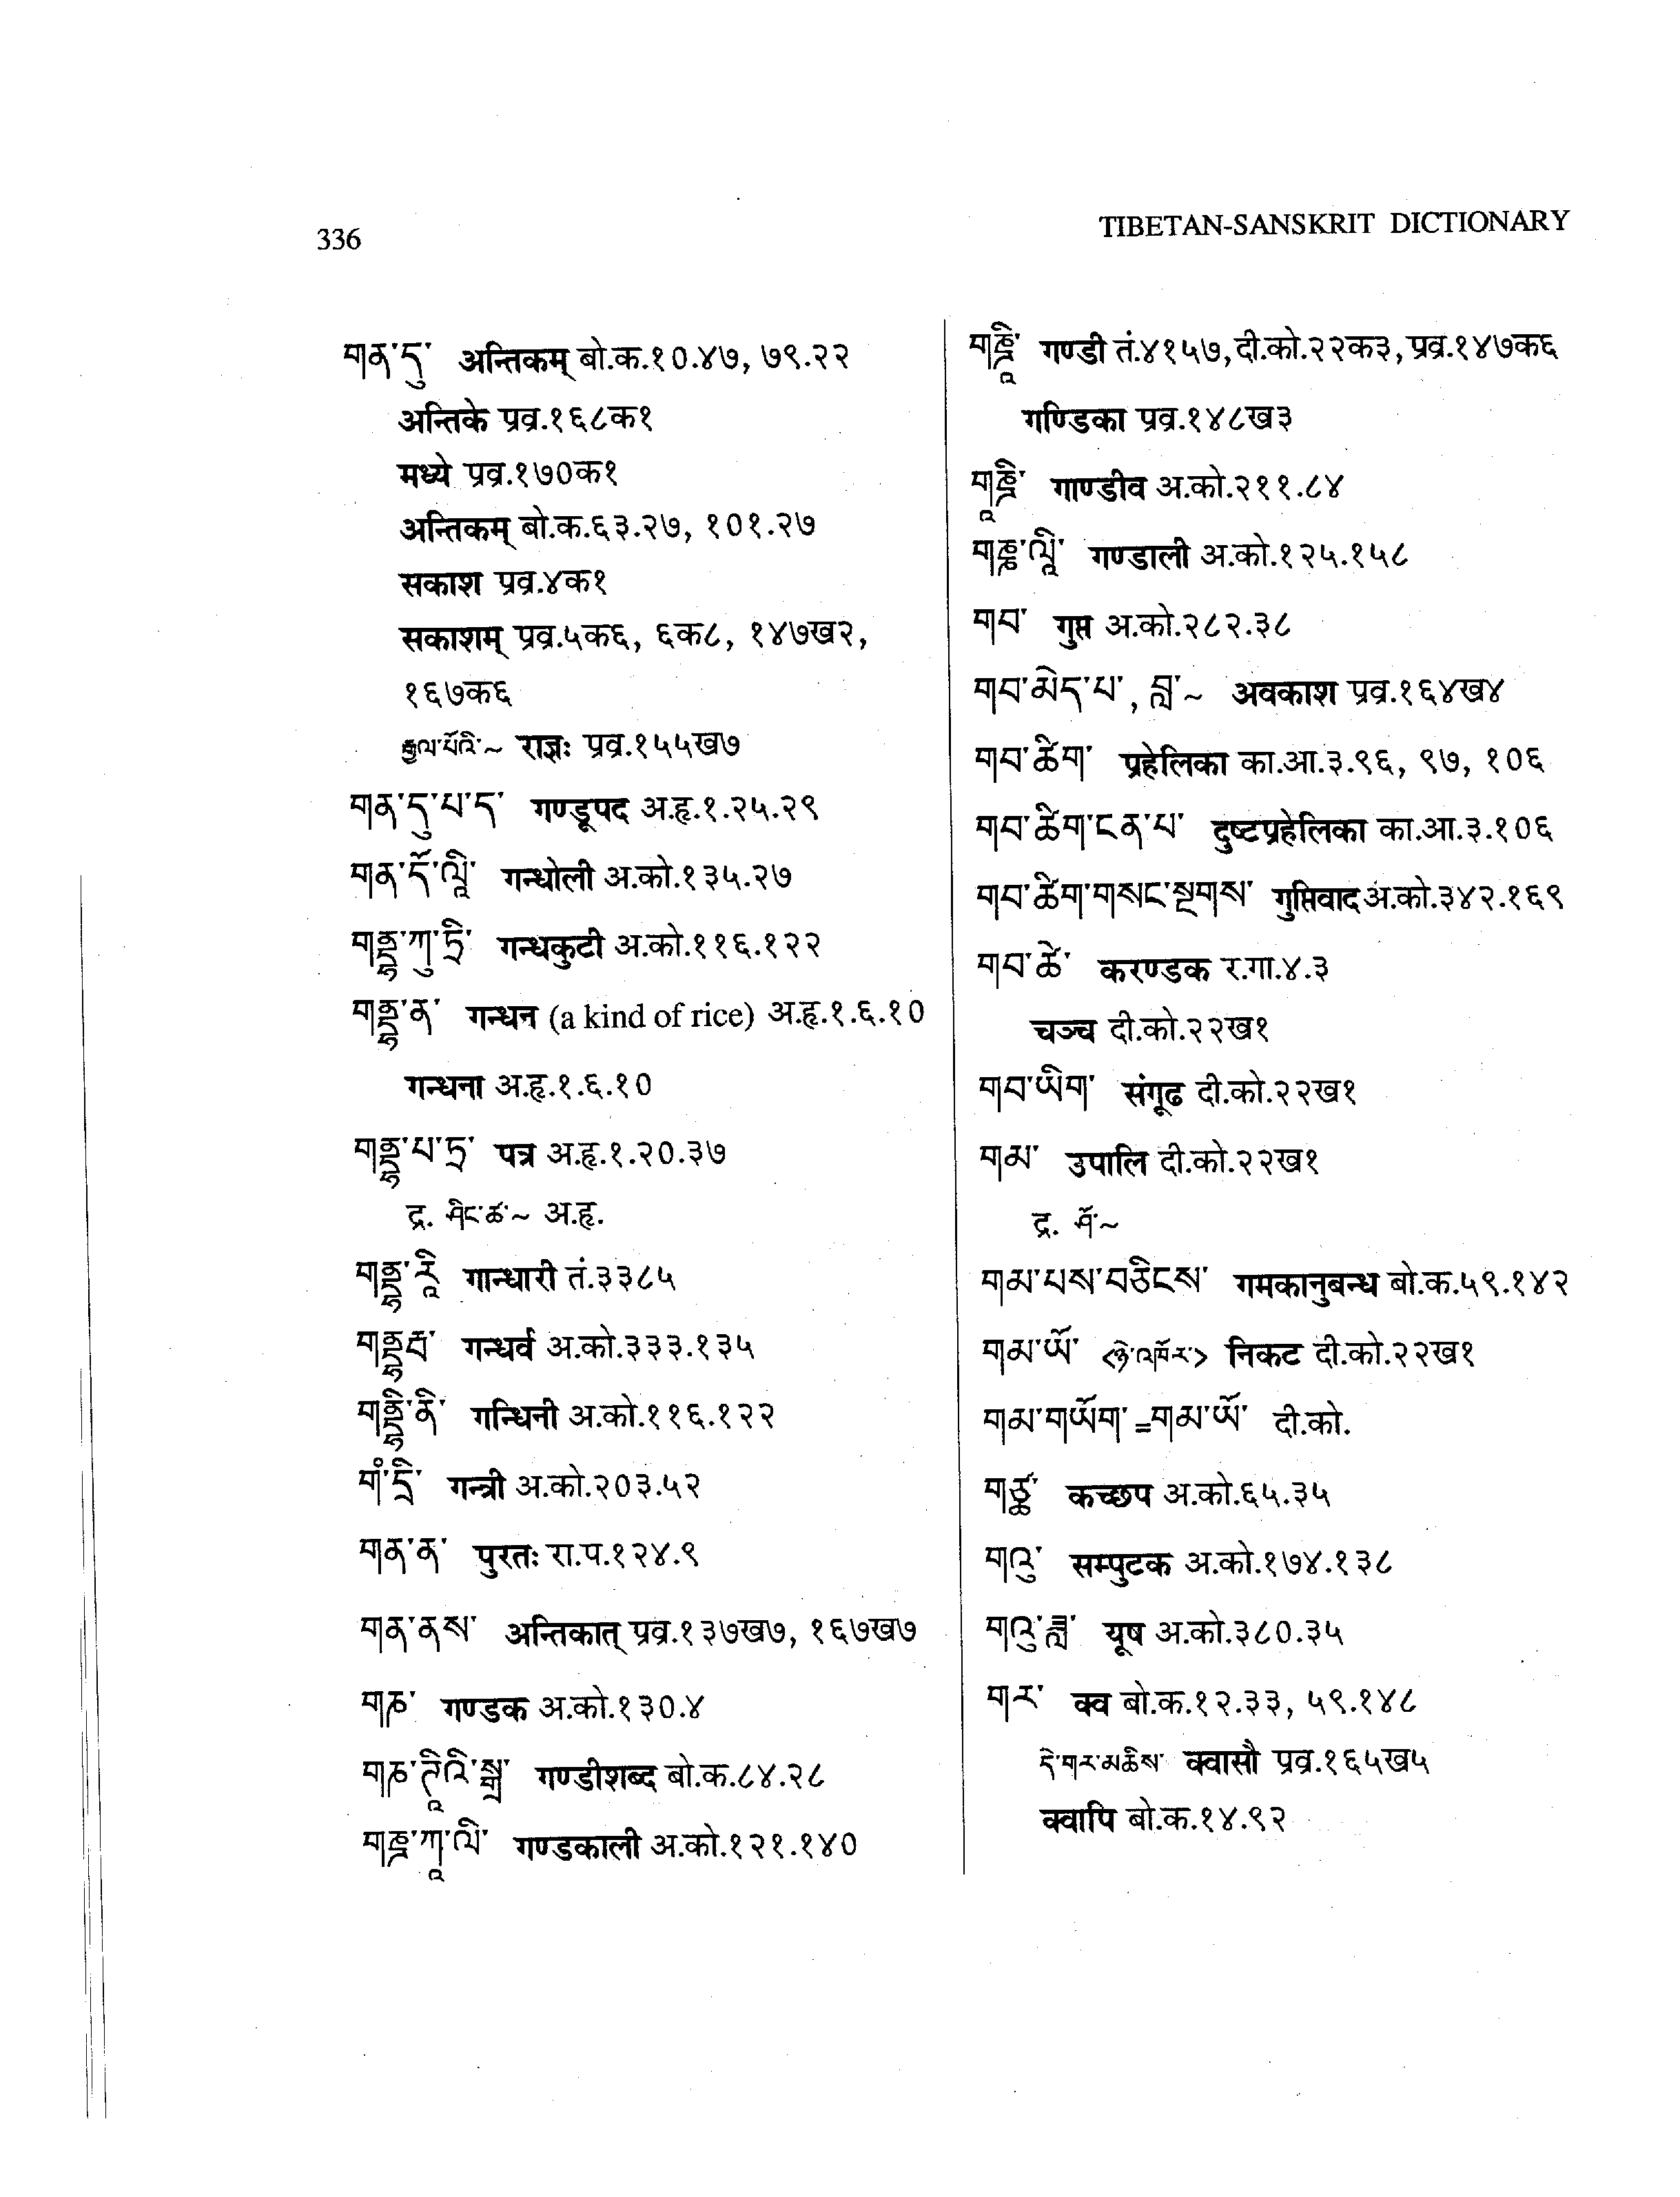 336
TIBETAN-SANSKRIT DICTIONARY
གན་དུ་ अन्तिकम् बो.क.१०.४७, ७९.२२
अन्तिके प्रव्र.१६८क१
मध्ये प्रव्र.१७०क१
अन्तिकम् बो.क.६३.२७, १०१.२७
सकाश प्रव्र.४क१
सकाशम् प्रव्र.५क६, ६क८, १४७ख२,
१६७क६
རྒྱལ་པོའི་~ राज्ञः प्रव्र.१५५ख७
གན་དུ་པ་ད་ गण्डूपद अ.हृ.१.२५.२९
གན་དོ་ལཱི་ गन्धोली अ.को.१३५.२७
གནྡྷ་ཀུ་ཊི་ गन्धकुटी अ.को.११६.१२२
གནྡྷ་ན་ गन्धन (a kind of rice) अ.हृ.१.६.१०
गन्धना अ.हृ.१.६.१०
གནྡྷ་པ་ཏྲ་ पत्र अ.हृ.१.२०.३७
द्र. ཤིང་ཚ་~ अ.हृ.
གནྡྷ་རཱི་ गान्धारी तं.३३८५
གནྡྷརྦ་ गन्धर्व अ.को.३३३.१३५
གནྡྷི་ནི་ गन्धिनी अ.को.११६.१२२
གཾ་ཏྲི་ गन्त्री अ.को.२०३.५२
གན་ན་ पुरतः रा.प.१२४.९
གན་ནས་ अन्तिकात् प्रव्र.१३७ख७, १६७ख७
གཎ་ गण्डक अ.को.१३०.४
གཎ་ཌཱིའི་སྒྲ་ गण्डीशब्द बो.क.८४.२८
གཎྜ་ཀཱ་ལི་ गण्डकाली अ.को.१२१.१४०
གཎྜཱི་ गण्डी तं.४१५७,दी.को.२२क३,प्रव्र.१४७क६
गण्डिका प्रव्र.१४८ख३
གཱཎྜི་ गाण्डीव अ.को.२११.८४
གཎྜ་ལཱི་ गण्डाली अ.को.१२५.१५८
གབ་ गुप्त अ.को.२८२.३८
གབ་མེད་པ་, བླ་~ अवकाश प्रव्र.१६४ख४
གབ་ཚིག་ प्रहेलिका का.आ.३.९६, ९७, १०६
གབ་ཚིག་ངན་པ་ दुष्टप्रहेलिका का.आ.३.१०६
གབ་ཚིག་གསང་སྔགས་ गुप्तिवाद अ.को.३४२.१६९
གབ་ཚེ་ करण्डक र.गा.४.३
चञ्च दी.को.२२ख१
གབ་ཡིག་ संगूढ दी.को.२२ख१
གམ་ उपालि दी.को.२२ख१
द्र. ཤོ་~
གམ་པས་བཅིངས་ गमकानुबन्ध बो.क.५९.१४२
གམ་ཡོ་ <ཉེ་འཁོར་> निकट दी.को.२२ख१
གམ་གཡོག་=གམ་ཡོ་ दी.को.
གཙྪ་ कच्छप अ.को.६५.३५
གའུ་ सम्पुटक अ.को.१७४.१३८
གའུ་ཟླ་ यूष अ.को.३८०.३५
གར་ क्व बो.क.१२.३३, ५९.१४८
དེ་གར་མཆིས་ क्वासौ प्रव्र.१६५ख५
क्वापि बो.क.१४.९२